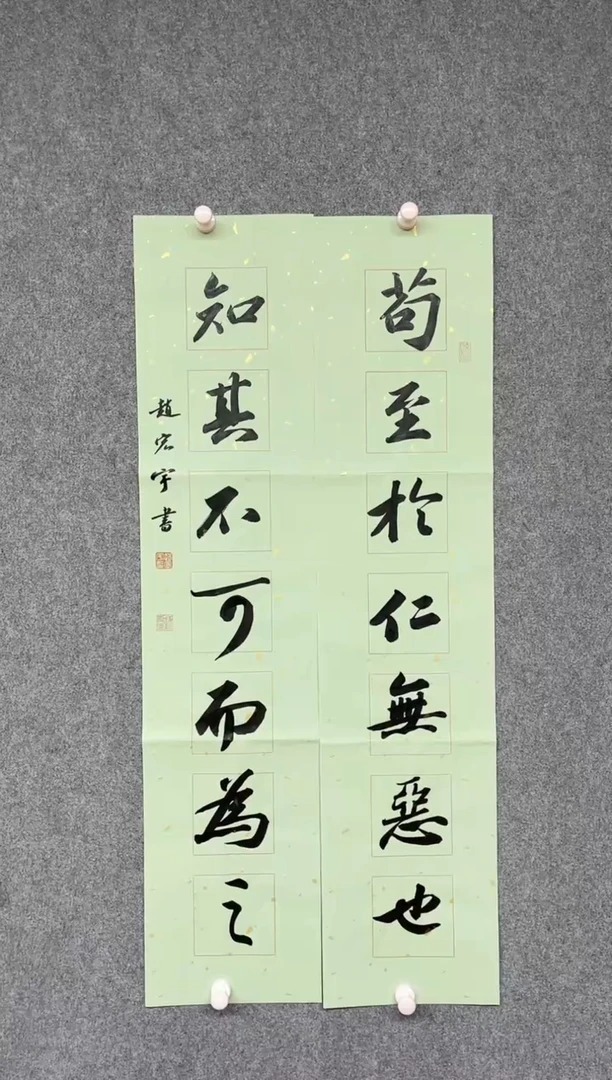 苟至於仁無惡也
知其不可而為之
趙宏宇書